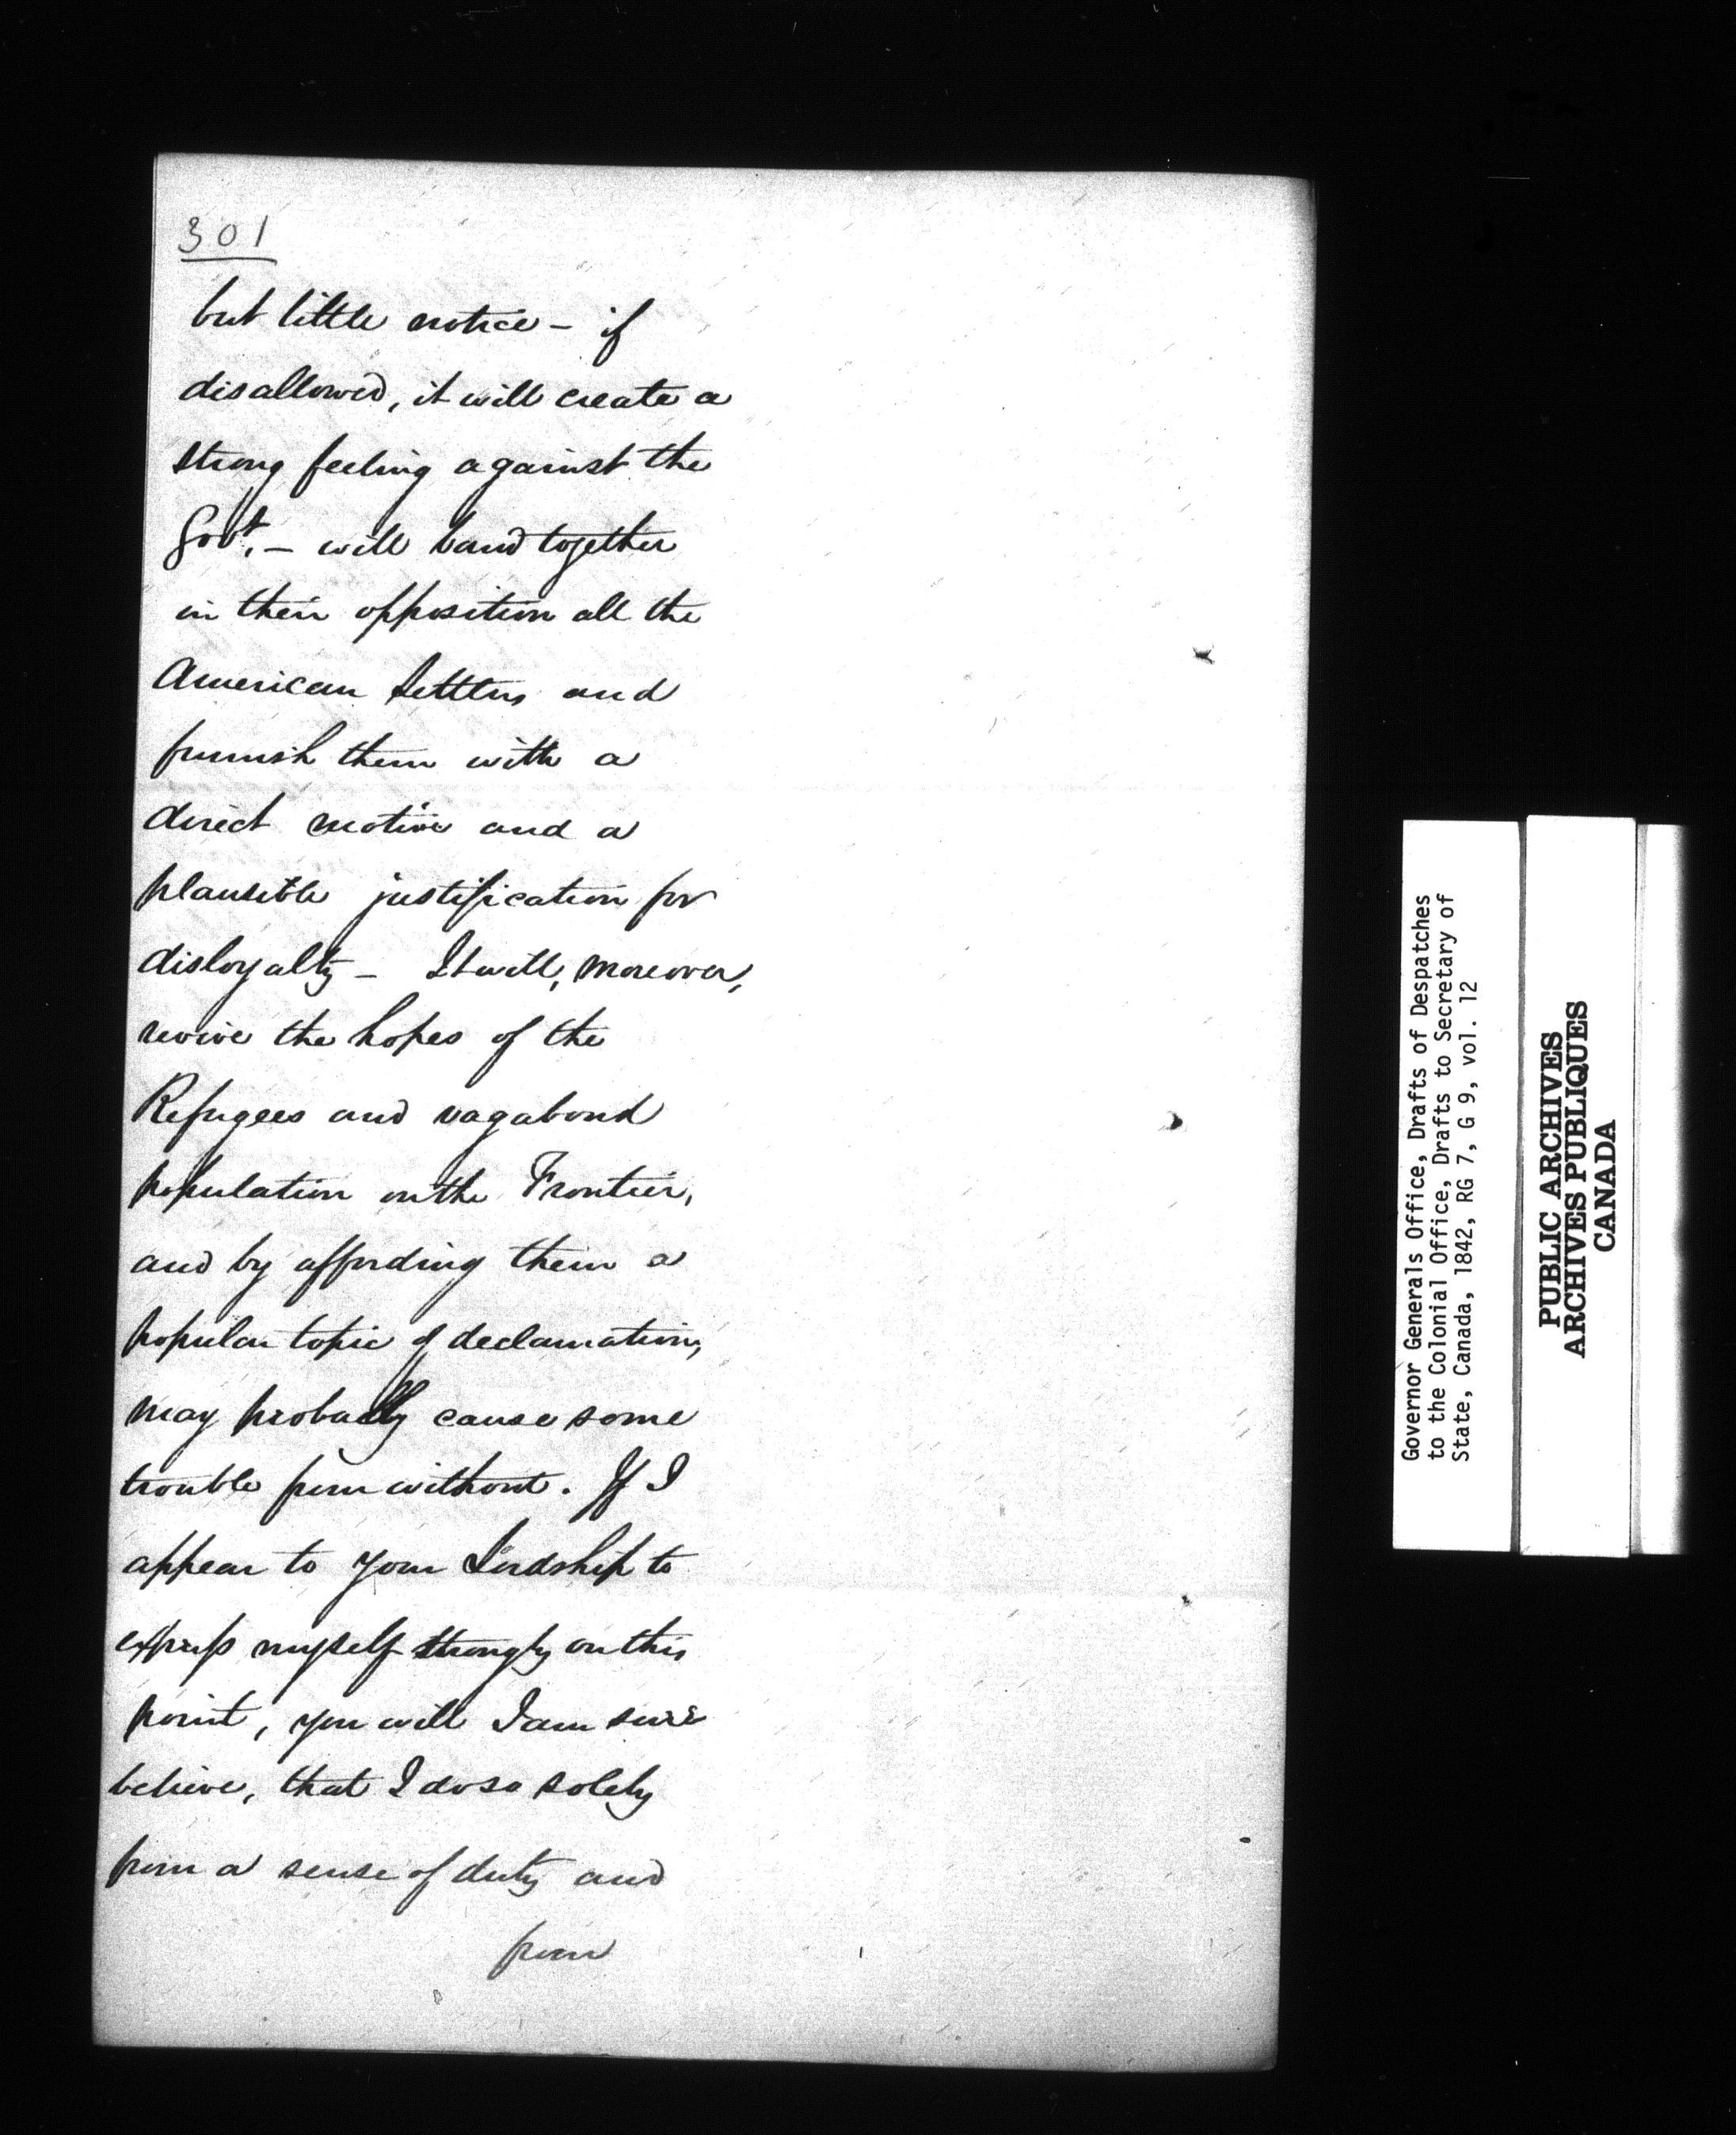 301
but little notice - if
disallowed, it will create a
strong feeling against the
Govt. - will band together
in their opposition all the
American Settlers and
furnish them with a
direct motive and a
plausible justification for
disloyalty - It will, moreover,
revive the hopes of the
Refugees and vagabond
population on the Frontier,
and by affording them a
popular topic of declamation,
may probably cause some
trouble from without. If I
appear to your Lordship to
express myself strongly on this
point, you will I am sure
believe, that I do so solely
from a sense of duty and
from
Governor Generals Office, Drafts of Despatches
to the Colonial Office, Drafts to Secretary of
State, Canada, 1842, RG 7, G 9, vol. 12
PUBLIC ARCHIVES
ARCHIVES PUBLIQUES
CANADA